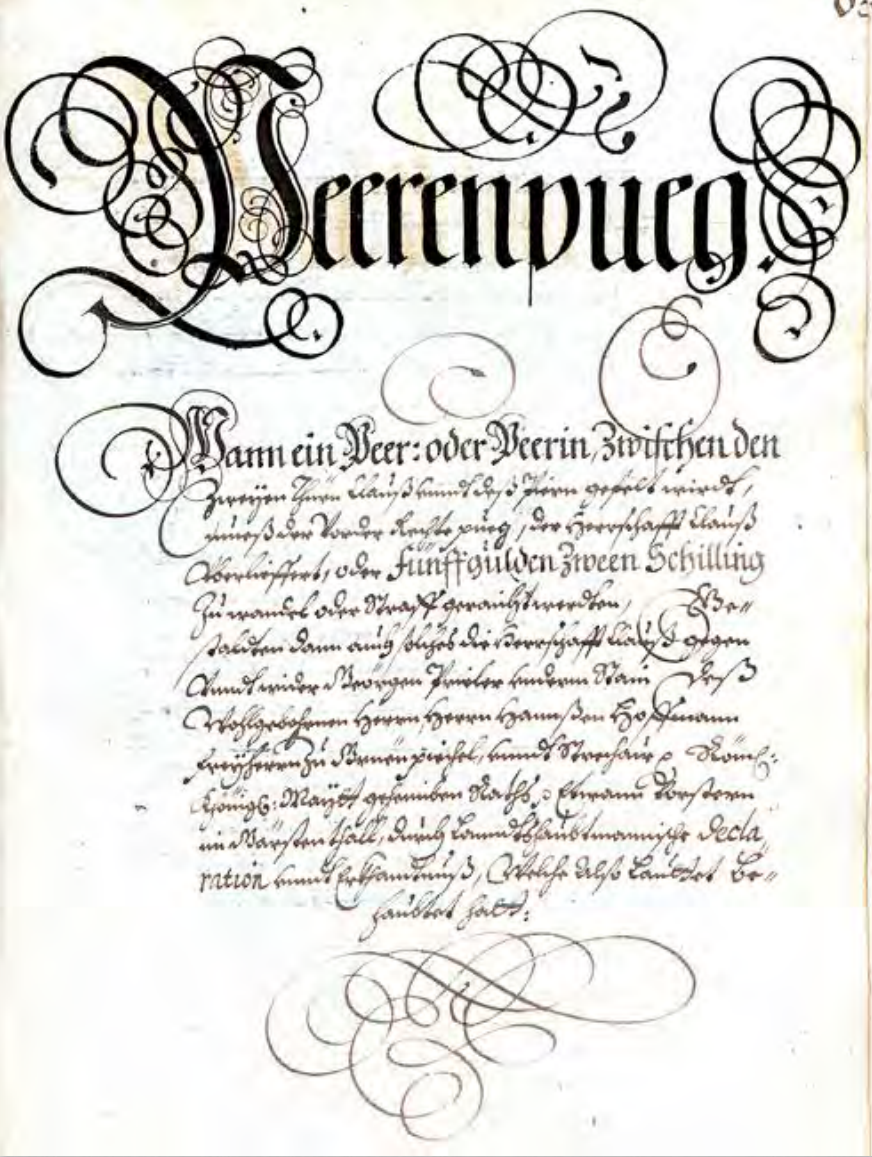 Peerenpueg.
Wann ein Peer: oder Peerin, Zwischen den
Zweÿen Thürn Clauß unndt deß Piern gefelt wirdt,
mueß der Vorder Rechte pueg, der Herrschafft Clauß
Überlieffert, oder Fünff gülden Zween Schilling
Zu wandl oder Straff geraicht werdten,
staldten dann auch solches die Herrschafft Clauß gegen
Unndt wider Georgen Prieler underm Stain Deß
Wohlgebohrnen Herrn, Herrn Hannßen Hoffmann
Freÿherrn Zu Gruenpüchel, unndt Strechau
Königl: Maÿtt: gehaimben Raths Etwann Vorstern
im Gärstenthall, durch Lanndtshaubtmannische Decla
ration unndt Erkhandtnuß, Welche Also Lauttet be„
haubtet hatt: